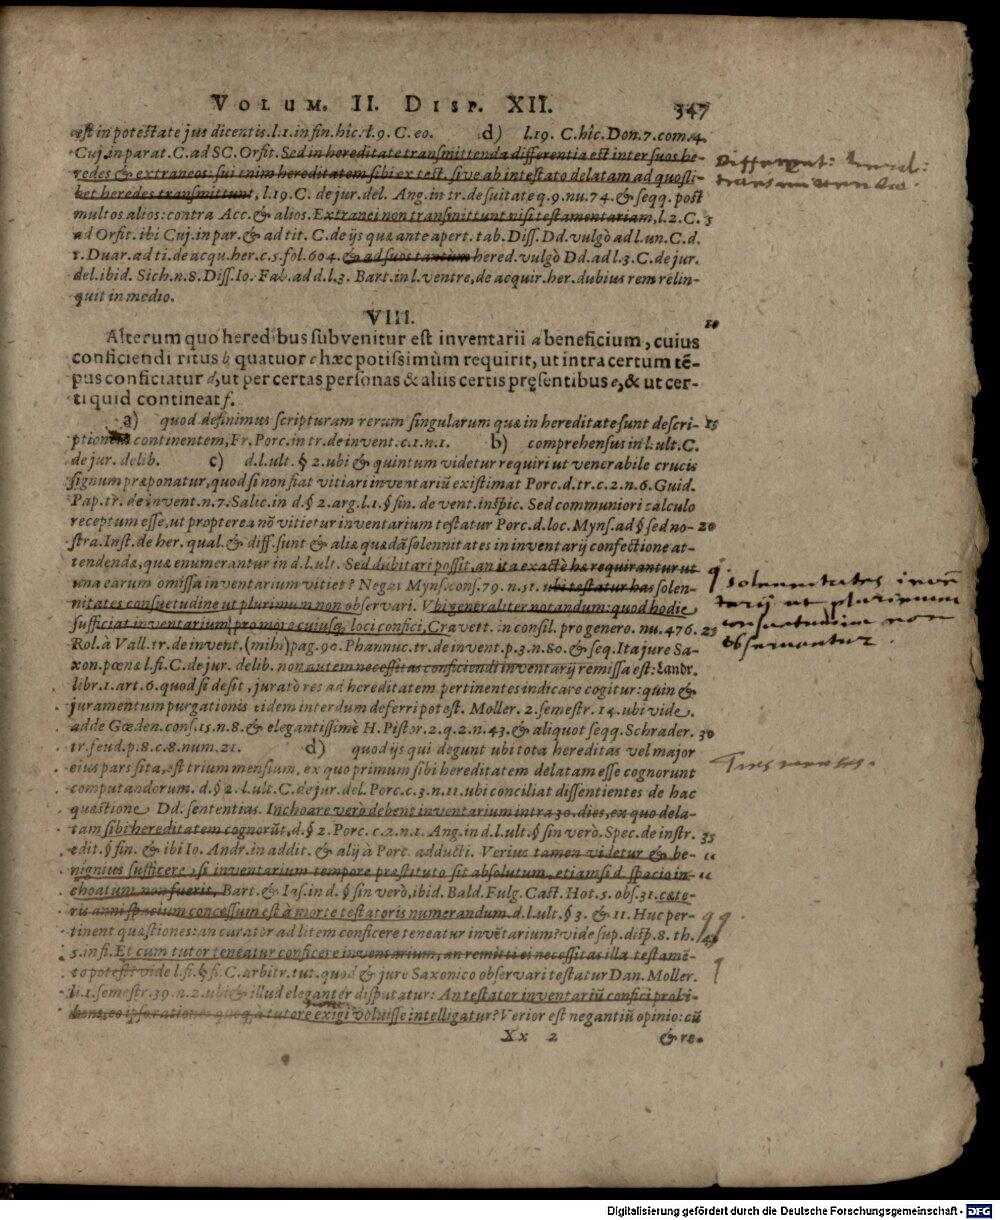 VOLUM. II. DISP. XII. 347
est in potestate jus dicentis. l. 1. in fin. hîc. l. 9. C. eo. d) l. 19. C. hîc. Don. 7. com. 4.
Cuj. in parat. C. ad SC. Orfit. Sed in hereditate transmittenda differentia est inter suos he-
redes & extraneos: sui enim hereditatem sibi ex test. sive ab intestato delatam ad quosli-
bet heredes transmittunt, l. 19. C. de jur. del. Ang. in tr. de suitate q. 9. nu. 74. & seqq. post
multos alios: contra Acc. & alios. Extranei non transmittunt nisi testamentariam, l. 2. C. 5
ad Orfit. ibi Cuj. in par. & ad tit. C. de ijs quæ ante apert. tab. Diss. Dd. vulgò ad l. un. C. d.
t. Duar. ad ti. de acqu. her. c. 5. fol. 604. & ad suos tantùm hered. vulgò Dd. ad l. 3. C. de jur.
del. ibid. Sich. n. 8. Diss. Io. Fab. ad d. l. 3. Bart. in l. ventre, de acquir. her. dubius rem relin-
quit in medio.
VIII. 10
Alterum quo heredibus subvenitur est inventarii a beneficium, cuius
conficiendi ritus b quatuor c hæc potissimùm requirit, ut intra certum tē-
pus conficiatur d, ut per certas personas & aliis certis pręsentibus e, & ut cer-
ti quid contineat f.
a) quod definimus scripturam rerum singularum quæ in hereditate sunt descri- 15
ptionem continentem, Fr. Porc. in tr. de invent. c. 1. n. 1. b) comprehensus in l. ult. C.
de jur. delib. c) d. l. ult. § 2. ubi & quintum videtur requiri ut venerabile crucis
signum præponatur, quod si non fiat vitiari inventariū existimat Porc. d. tr. c. 2. n. 6. Guid.
Pap. tr. de invent. n. 7. Salic. in d. § 2. arg. l. 1. § fin. de vent. inspic. Sed communiori calculo
receptum esse, ut propterea nō vitietur inventarium testatur Porc. d. loc. Myns. ad § sed no- 20
stra. Inst. de her. qual. & diff. sunt & aliæ quædā solennitates in inventarij confectione at-
tendendæ, quæ enumerantur in d. l. ult. Sed dubitari possit, an ita exactè hæ requirantur ut
una earum omissa inventarium vitiet? Negat Myns. cons. 79. n. 51. ubi testatur has solen-
nitates consuetudine ut plurimum non observari. Vbi generaliter notandum: quod hodie
sufficiat inventarium pro more cuiusq; loci confici, Cravett. in consil. pro genero. nu. 476. 25
Rol. à Vall. tr. de invent. (mihi) pag. 90. Phannuc. tr. de invent. p. 3. n. 80. & seq. Ita jure Sa-
xon. pœnæ l. fi. C. de jur. delib. non autem necessitas conficiendi inventarij remissa est: Landr.
libr. 1. art. 6. quod si desit, juratò res ad hereditatem pertinentes indicare cogitur: quin &
juramentum purgationis eidem interdum deferri potest. Moller. 2. semestr. 14. ubi vide.
adde Gœden. cons. 15. n. 8. & elegantissimè H. Pistor. 2. q. 2. n. 43. & aliquot seqq. Schrader. 30
tr. feud. p. 8. c. 8. num. 21. d) quod ijs qui degunt ubi tota hereditas vel major
eius pars sita, est trium mensium, ex quo primum sibi hereditatem delatam esse cognorunt
computandorum. d. § 2. l. ult. C. de jur. del. Porc. c. 3. n. 11. ubi conciliat dissentientes de hac
quæstione Dd. sententias. Inchoare verò debent inventarium intra 30. dies, ex quo dela-
tam sibi hereditatem cognorūt, d. § 2. Porc. c. 2. n. 1. Ang. in d. l. ult. § sin verò. Spec. de instr. 35
edit. § fin. & ibi Io. Andr. in addit. & alij à Porc. adducti. Verius tamen videtur & be-
nignius sufficere, si inventarium tempore præstituto sit absolutum, etiamsi d. spacio in-
choatum non fuerit, Bart. & Ias. in d. § sin verò, ibid. Bald. Fulg. Cast. Hot. 5. obs. 31. cæte-
ris anni spacium concessum est à morte testatoris numerandum. d. l. ult. § 3. & 11. Huc per-
tinent quæstiones: an curator ad litem conficere teneatur invētarium? vide sup. disp. 8. th. 40
5. in fi. Et cum tutor teneatur conficere inventarium, an remitti ei necessitas illa testamē-
to potest? vide l. fi. § fi. C. arbitr. tut. quod & jure Saxonico observari testatur Dan. Moller.
li. 1. semestr. 39. n. 2. ubi & illud eleganter disputatur: An testator inventariū confici prohi-
bens, eo ipso rationes quoq; à tutore exigi voluisse intelligatur? Verior est negantiū opinio: cū
Xx 2 & re-
solennitates invē
tarij ut plurimum
consuetudine non
observantur.
Tres menses.
Digitalisierung gefördert durch die Deutsche Forschungsgemeinschaft - DFG